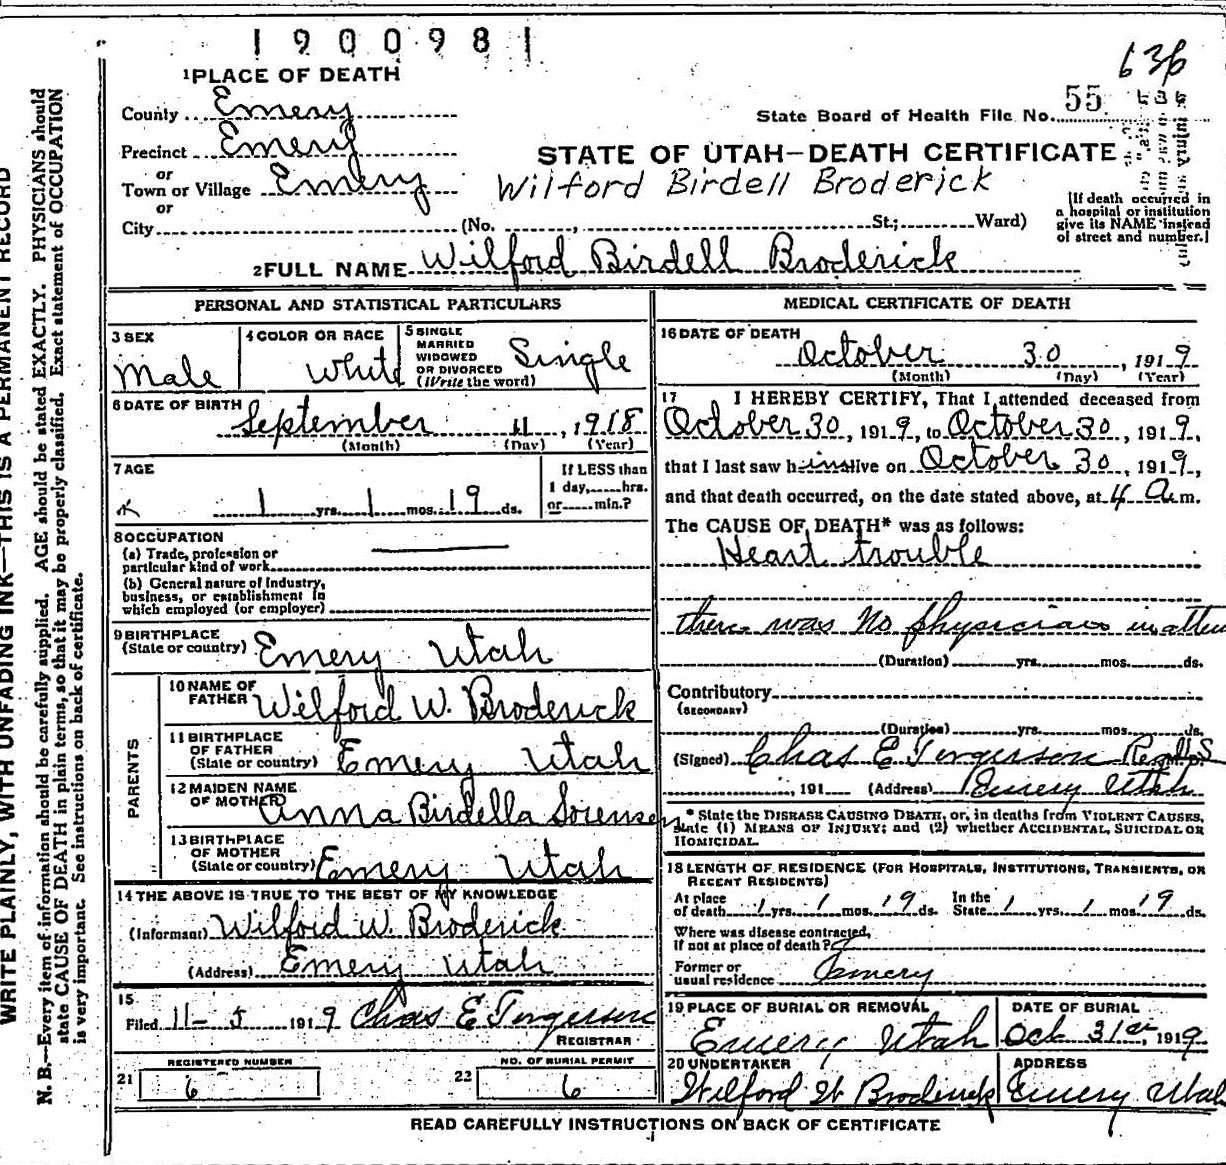 1900981
636
1 PLACE OF DEATH
County Emery
State Board of Health File No. 55
Precinct Emery
STATE OF UTAH—DEATH CERTIFICATE
or
Town or Village Emery
Wilford Birdell Broderick
or
City (No. , St.; Ward)
[If death occurred in
a hospital or institution
give its NAME instead
of street and number.]
2 FULL NAME Wilford Birdell Broderick
PERSONAL AND STATISTICAL PARTICULARS
3 SEX
Male
4 COLOR OR RACE
White
5 SINGLE
MARRIED
WIDOWED
OR DIVORCED
(Write the word)
Single
6 DATE OF BIRTH
September 11, 1918
(Month) (Day) (Year)
7 AGE
1 yrs. 1 mos. 19 ds.
If LESS than
1 day, hrs.
or min.?
8 OCCUPATION
(a) Trade, profession or
particular kind of work
(b) General nature of Industry,
business, or establishment in
which employed (or employer)
9 BIRTHPLACE
(State or country) Emery Utah
PARENTS
10 NAME OF
FATHER Wilford W. Broderick
11 BIRTHPLACE
OF FATHER
(State or country) Emery Utah
12 MAIDEN NAME
OF MOTHER Anna Birdella Sorensen
13 BIRTHPLACE
OF MOTHER
(State or country) Emery Utah
14 THE ABOVE IS TRUE TO THE BEST OF MY KNOWLEDGE
(Informant) Wilford W. Broderick
(Address) Emery Utah
15
Filed 11-5 1919 Chas E Jorgersen
REGISTRAR
REGISTERED NUMBER
21 6
NO. OF BURIAL PERMIT
22 6
MEDICAL CERTIFICATE OF DEATH
16 DATE OF DEATH
October 30, 1919
(Month) (Day) (Year)
17 I HEREBY CERTIFY, That I attended deceased from
October 30, 1919, to October 30, 1919,
that I last saw him alive on October 30, 1919,
and that death occurred, on the date stated above, at 4 a.m.
The CAUSE OF DEATH* was as follows:
Heart trouble
there was no physician in atten
(Duration) yrs. mos. ds.
Contributory
(SECONDARY)
(Duration) yrs. mos. ds.
(Signed) Chas E Jorgerson
, 191 (Address) Emery Utah
* State the DISEASE CAUSING DEATH, or, in deaths from VIOLENT CAUSES,
state (1) MEANS OF INJURY; and (2) whether ACCIDENTAL, SUICIDAL OR
HOMICIDAL.
18 LENGTH OF RESIDENCE (FOR HOSPITALS, INSTITUTIONS, TRANSIENTS, OR
RECENT RESIDENTS)
At place
of death 1 yrs. 1 mos. 19 ds.
In the
State 1 yrs. 1 mos. 19 ds.
Where was disease contracted,
if not at place of death?
Former or
usual residence Emery
19 PLACE OF BURIAL OR REMOVAL
Emery Utah
DATE OF BURIAL
Oct 31st, 1919
20 UNDERTAKER
Wilford W Broderick
ADDRESS
Emery Utah
READ CAREFULLY INSTRUCTIONS ON BACK OF CERTIFICATE
WRITE PLAINLY, WITH UNFADING INK—THIS IS A PERMANENT RECORD
N. B.—Every item of information should be carefully supplied. AGE should be stated EXACTLY. PHYSICIANS should
state CAUSE OF DEATH in plain terms, so that it may be properly classified. Exact statement of OCCUPATION
is very important. See instructions on back of certificate.